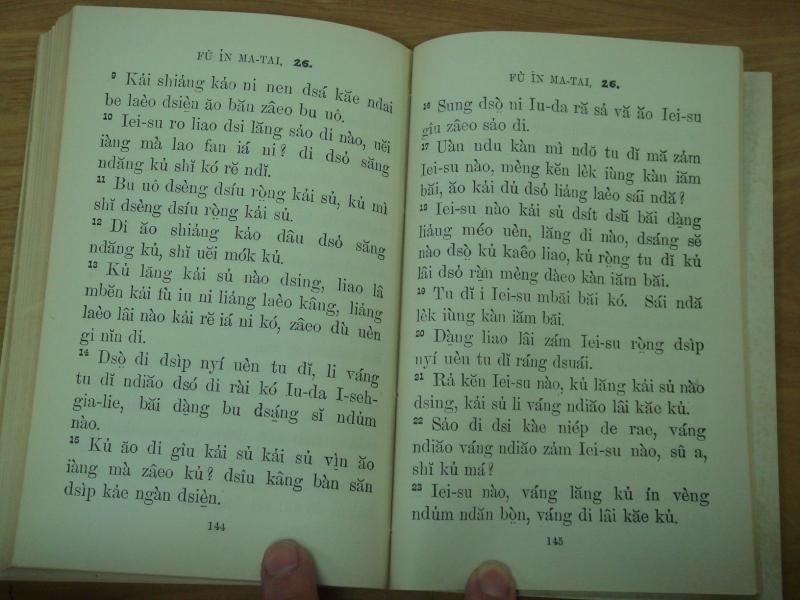 FŬ ỈN MA-TAI, 26.
9 Kải shiảng kảo ni nen dsá kăe ndai
be laèo dsièn ăo băn zâeo bu uô.
10 Iei-su ro liao dsi lăng sáo di nào, uĕi
iàng mà lao fan iá ni? di dsỏ săng
ndăng kủ shĭ kó rĕ ndĭ.
11 Bu uô dsèng dsíu rọ̀ng kải sủ, kủ mì
shĭ dsèng dsíu rọ̀ng kải sủ.
12 Di ăo shiảng kảo dâu dsỏ săng
ndăng kủ, shĭ uĕi mók kủ.
13 Kủ lăng kải sủ nào dsing, liao lâ
mbĕn kải fù iu ni liảng laèo kâng, liảng
laèo lâi nào kải rĕ iá ni kó, zâeo dù uèn
gi nĭn di.
14 Dsọ̀ di dsìp nyí uèn tu dĭ, li váng
tu dĭ ndiăo dsó di rài kó Iu-da I-seh-
gia-lie, băi dạ̀ng bu dsạ́ng sĭ ndủm
nào.
15 Kủ ăo di gîu kải sủ kải sủ vìn ăo
iàng mà zâeo kủ? dsîu kâng bàn săn
dsìp kảe ngàn dsiẹ̀n.
144
FŬ ỈN MA-TAI, 26.
16 Sung dsọ̀ ni Iu-da ră sả vă ăo Iei-su
gîu zâeo sảo di.
17 Uàn ndu kàn mì ndŏ tu dĭ mă zảm
Iei-su nào, mèng kĕn lèk iùng kàn iăm
băi, ăo kải dủ dsỏ liảng laèo sái ndă?
18 Iei-su nào kải sủ dsít dsŭ băi dạ̀ng
liảng méo uèn, lăng di nào, dsáng sĕ
nào dsọ̀ kủ kaêo liao, kủ rọng tu dĭ kủ
lâi dsỏ rạ̀n mèng dàeo kàn iăm băi.
19 Tu dĭ i Iei-su mbăi băi kó. Sái ndă
lèk iùng kàn iăm băi.
20 Dạ̀ng liao lâi zám Iei-su rọ̀ng dsịp
nyí uèn tu dĭ ráng dsuái.
21 Rả kĕn Iei-su nào, kủ lăng kải sủ nào
dsing, kải sủ li váng ndiăo lâi kăe kủ.
22 Sảo di dsi kàe niép de rae, váng
ndiăo váng ndiăo zảm Iei-su nào, sû a,
shĭ kủ má?
23 Iei-su nào, váng lăng kủ ín vèng
ndủm ndăn bọ̀n, váng di lâi kăe kủ.
145